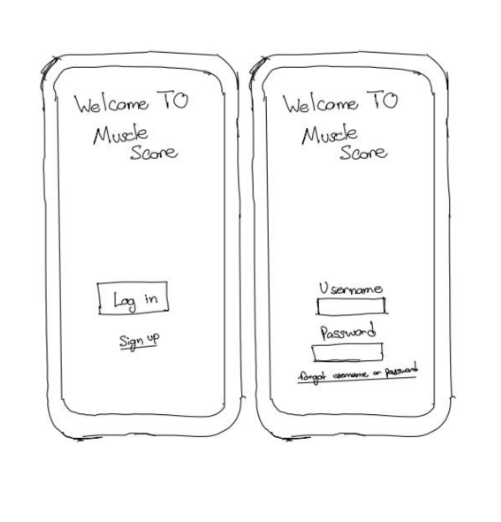 Welcome TO
Muscle
Score
Log in
Sign up
Welcome TO
Muscle
Score
Username
Password
forgot username or password